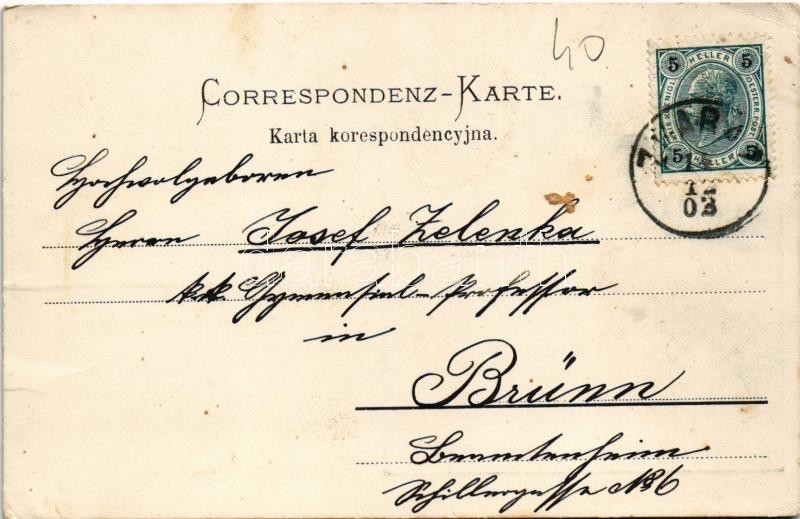 40
CORRESPONDENZ-KARTE.
Karta korespondencyjna.
5 HELLER 5
KAIS. KÖNIGL. OESTERR. POST.
5 HELLER 5
12
03
Hochwolgeboren
Herrn Josef Zelenka
k.k. Gymnasial-Professor
in
Brünn
Beamtenheim
Schillergasse No 6